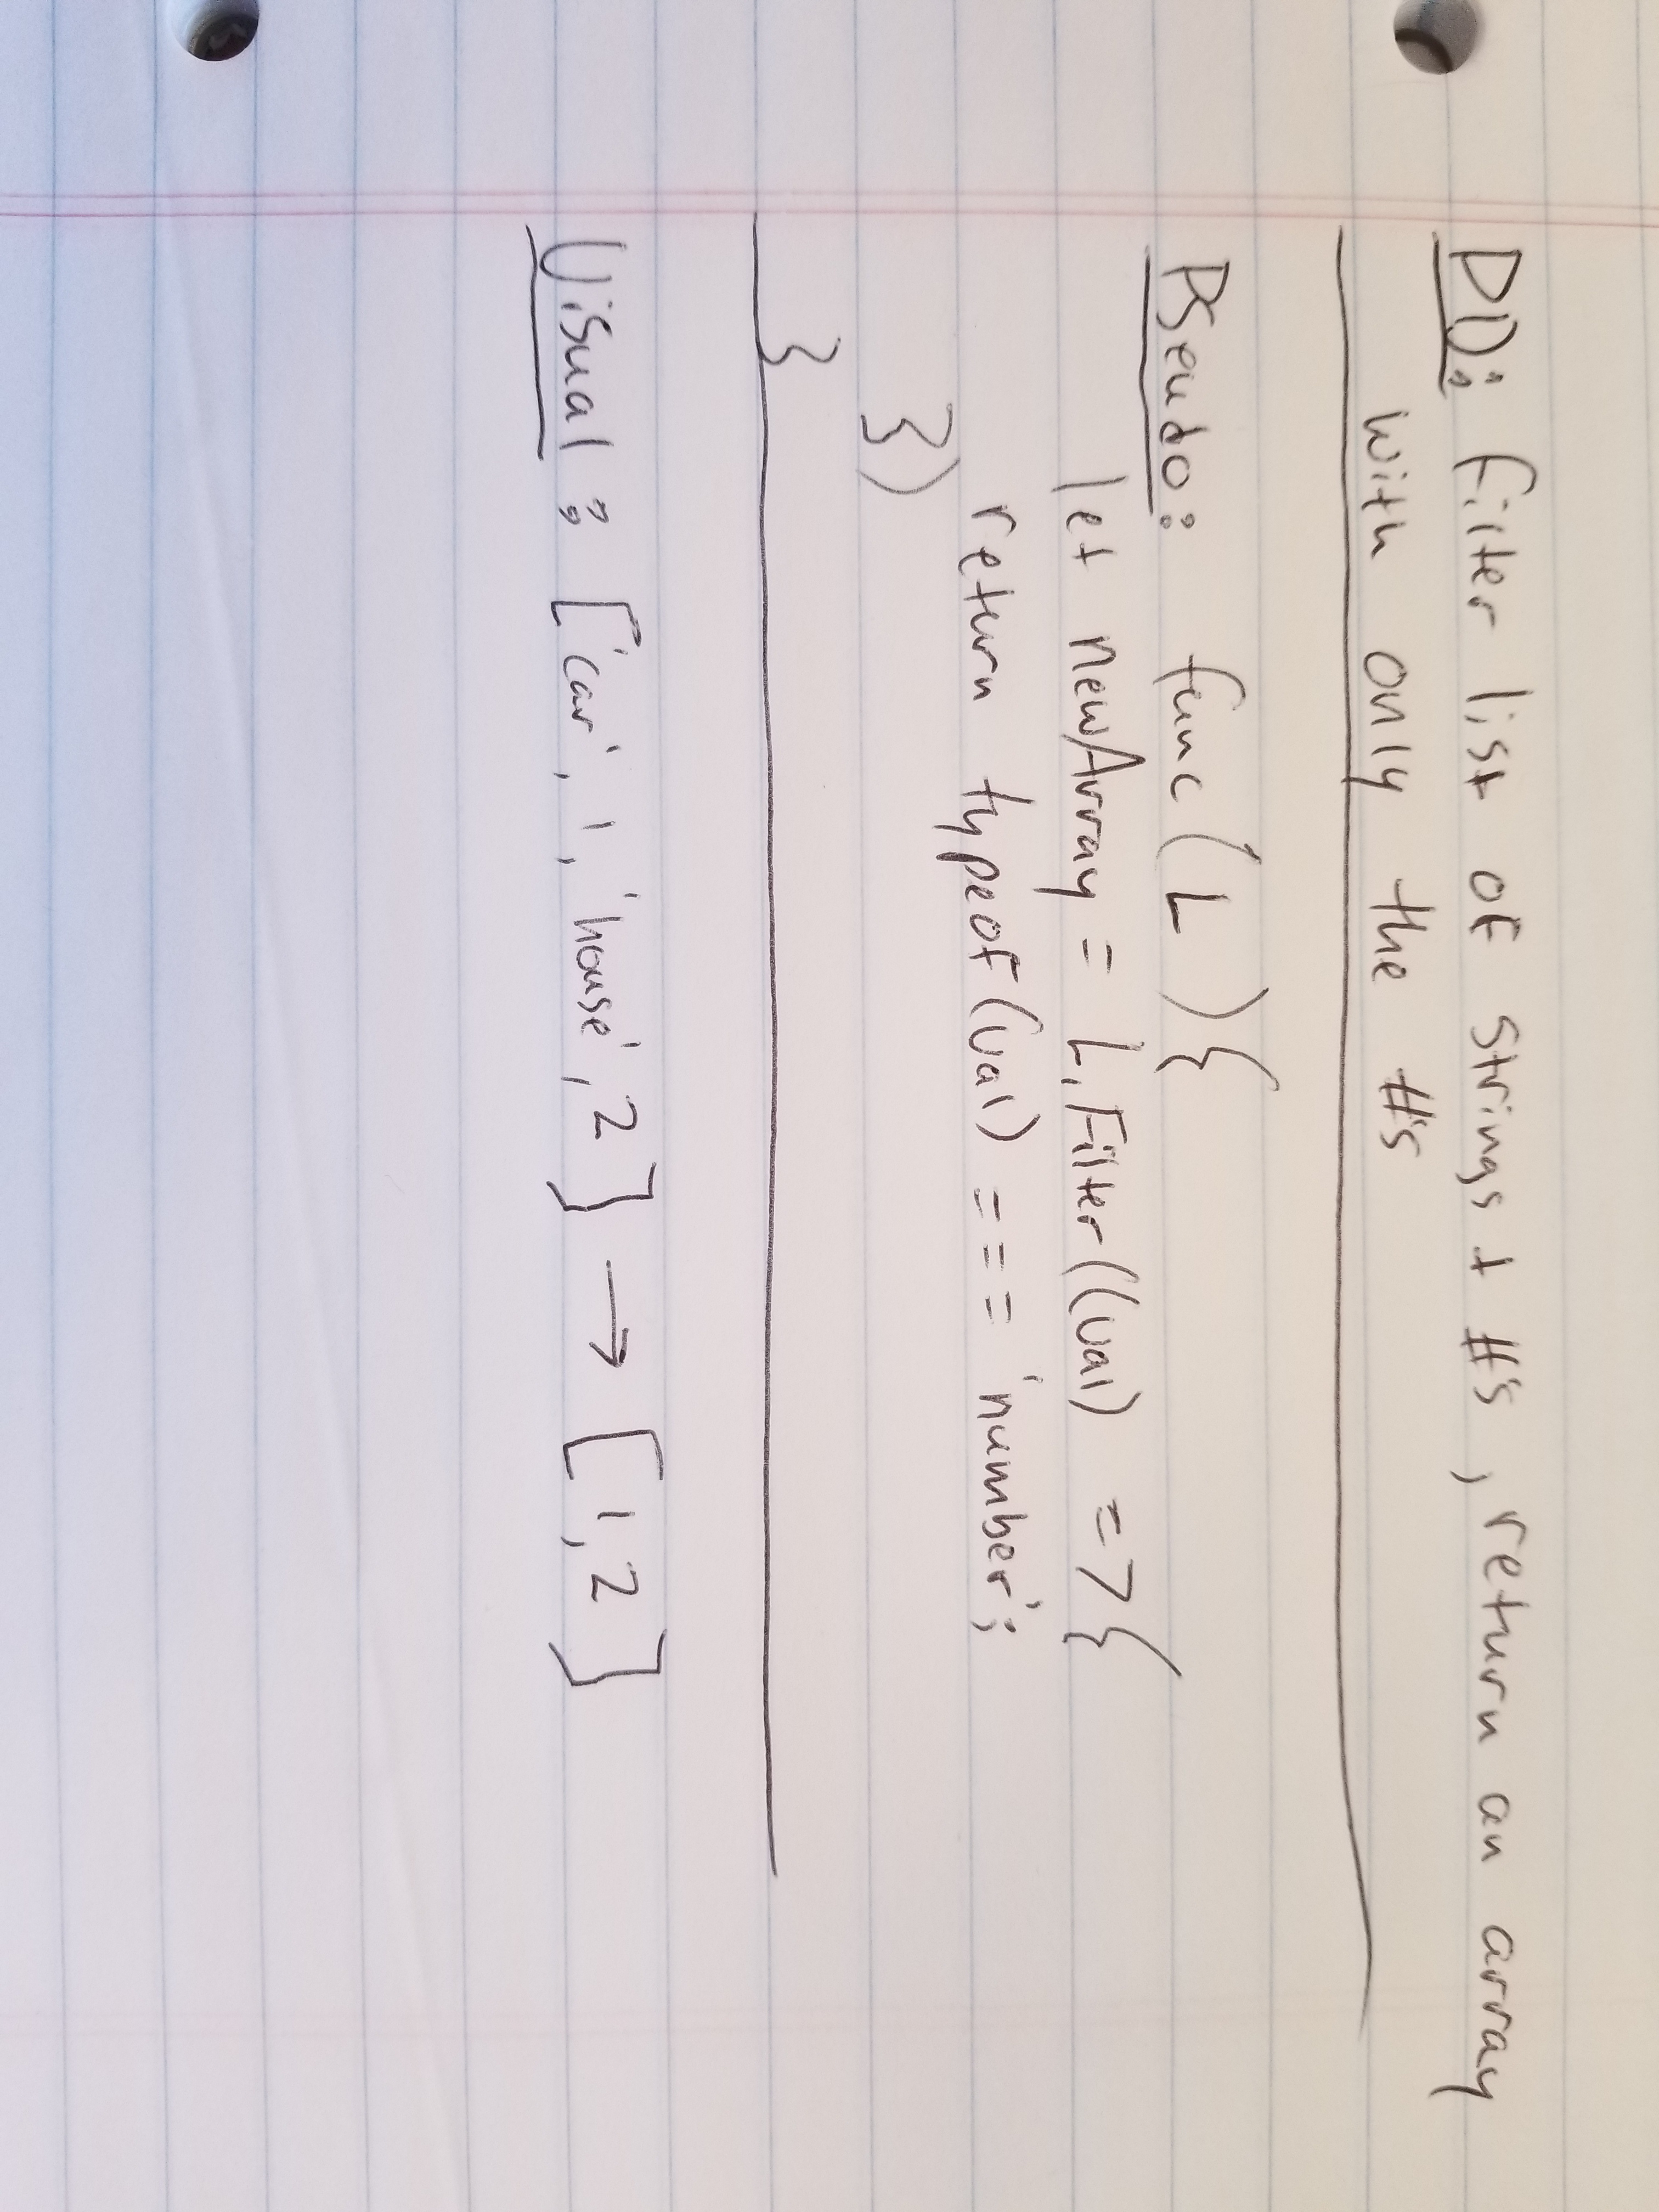 PD: filter list of strings + #'s, return an array
with only the #'s
Pseudo: func(L){
let newArray = L.Filter((val) => {
return typeof(val) === 'number';
})
}
Visual: ['car', 1, 'house', 2] → [1,2]